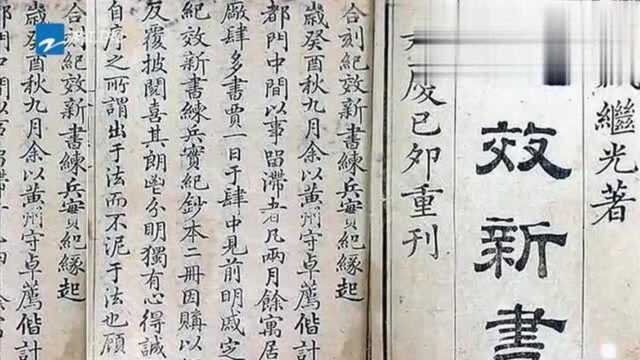 繼光著
效新書
慶已卯重刊
合刻紀效新書練兵實紀緣起
歲癸酉秋九月余以黃州守卓薦偕計
都門中間以事留滯者凡兩月餘寓居
廠肆多書賈一日于肆中見前明戚定
紀效新書練兵實紀鈔本二冊因購以
反覆披閱喜其朗鬯分明獨有心得誠
自序之所謂出于法而不泥于法也顧
合刻紀效新書練兵實紀緣起
歲癸酉秋九月余以黃州守卓薦偕計